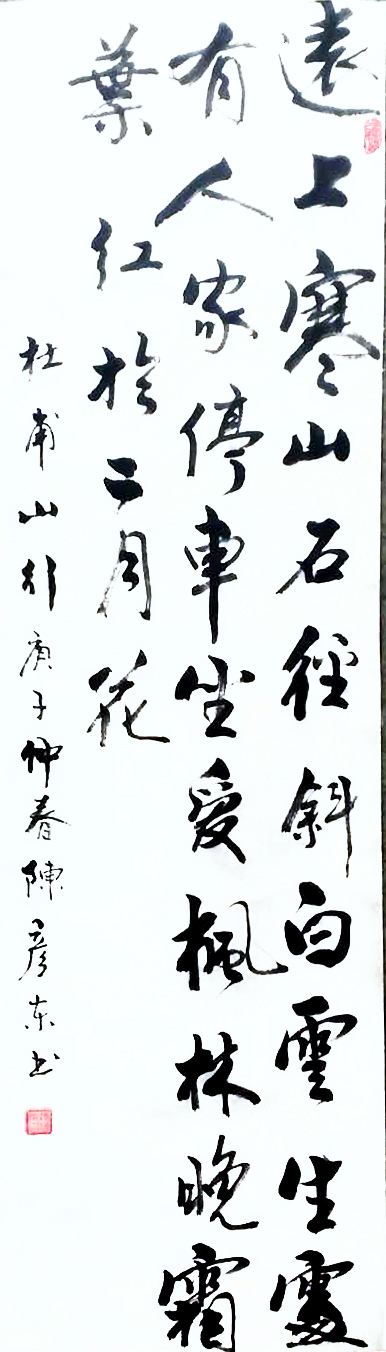 遠上寒山石徑斜白雲生處
有人家停車坐愛楓林晚霜
葉紅於二月花
杜甫山行庚子仲春陳彦东书